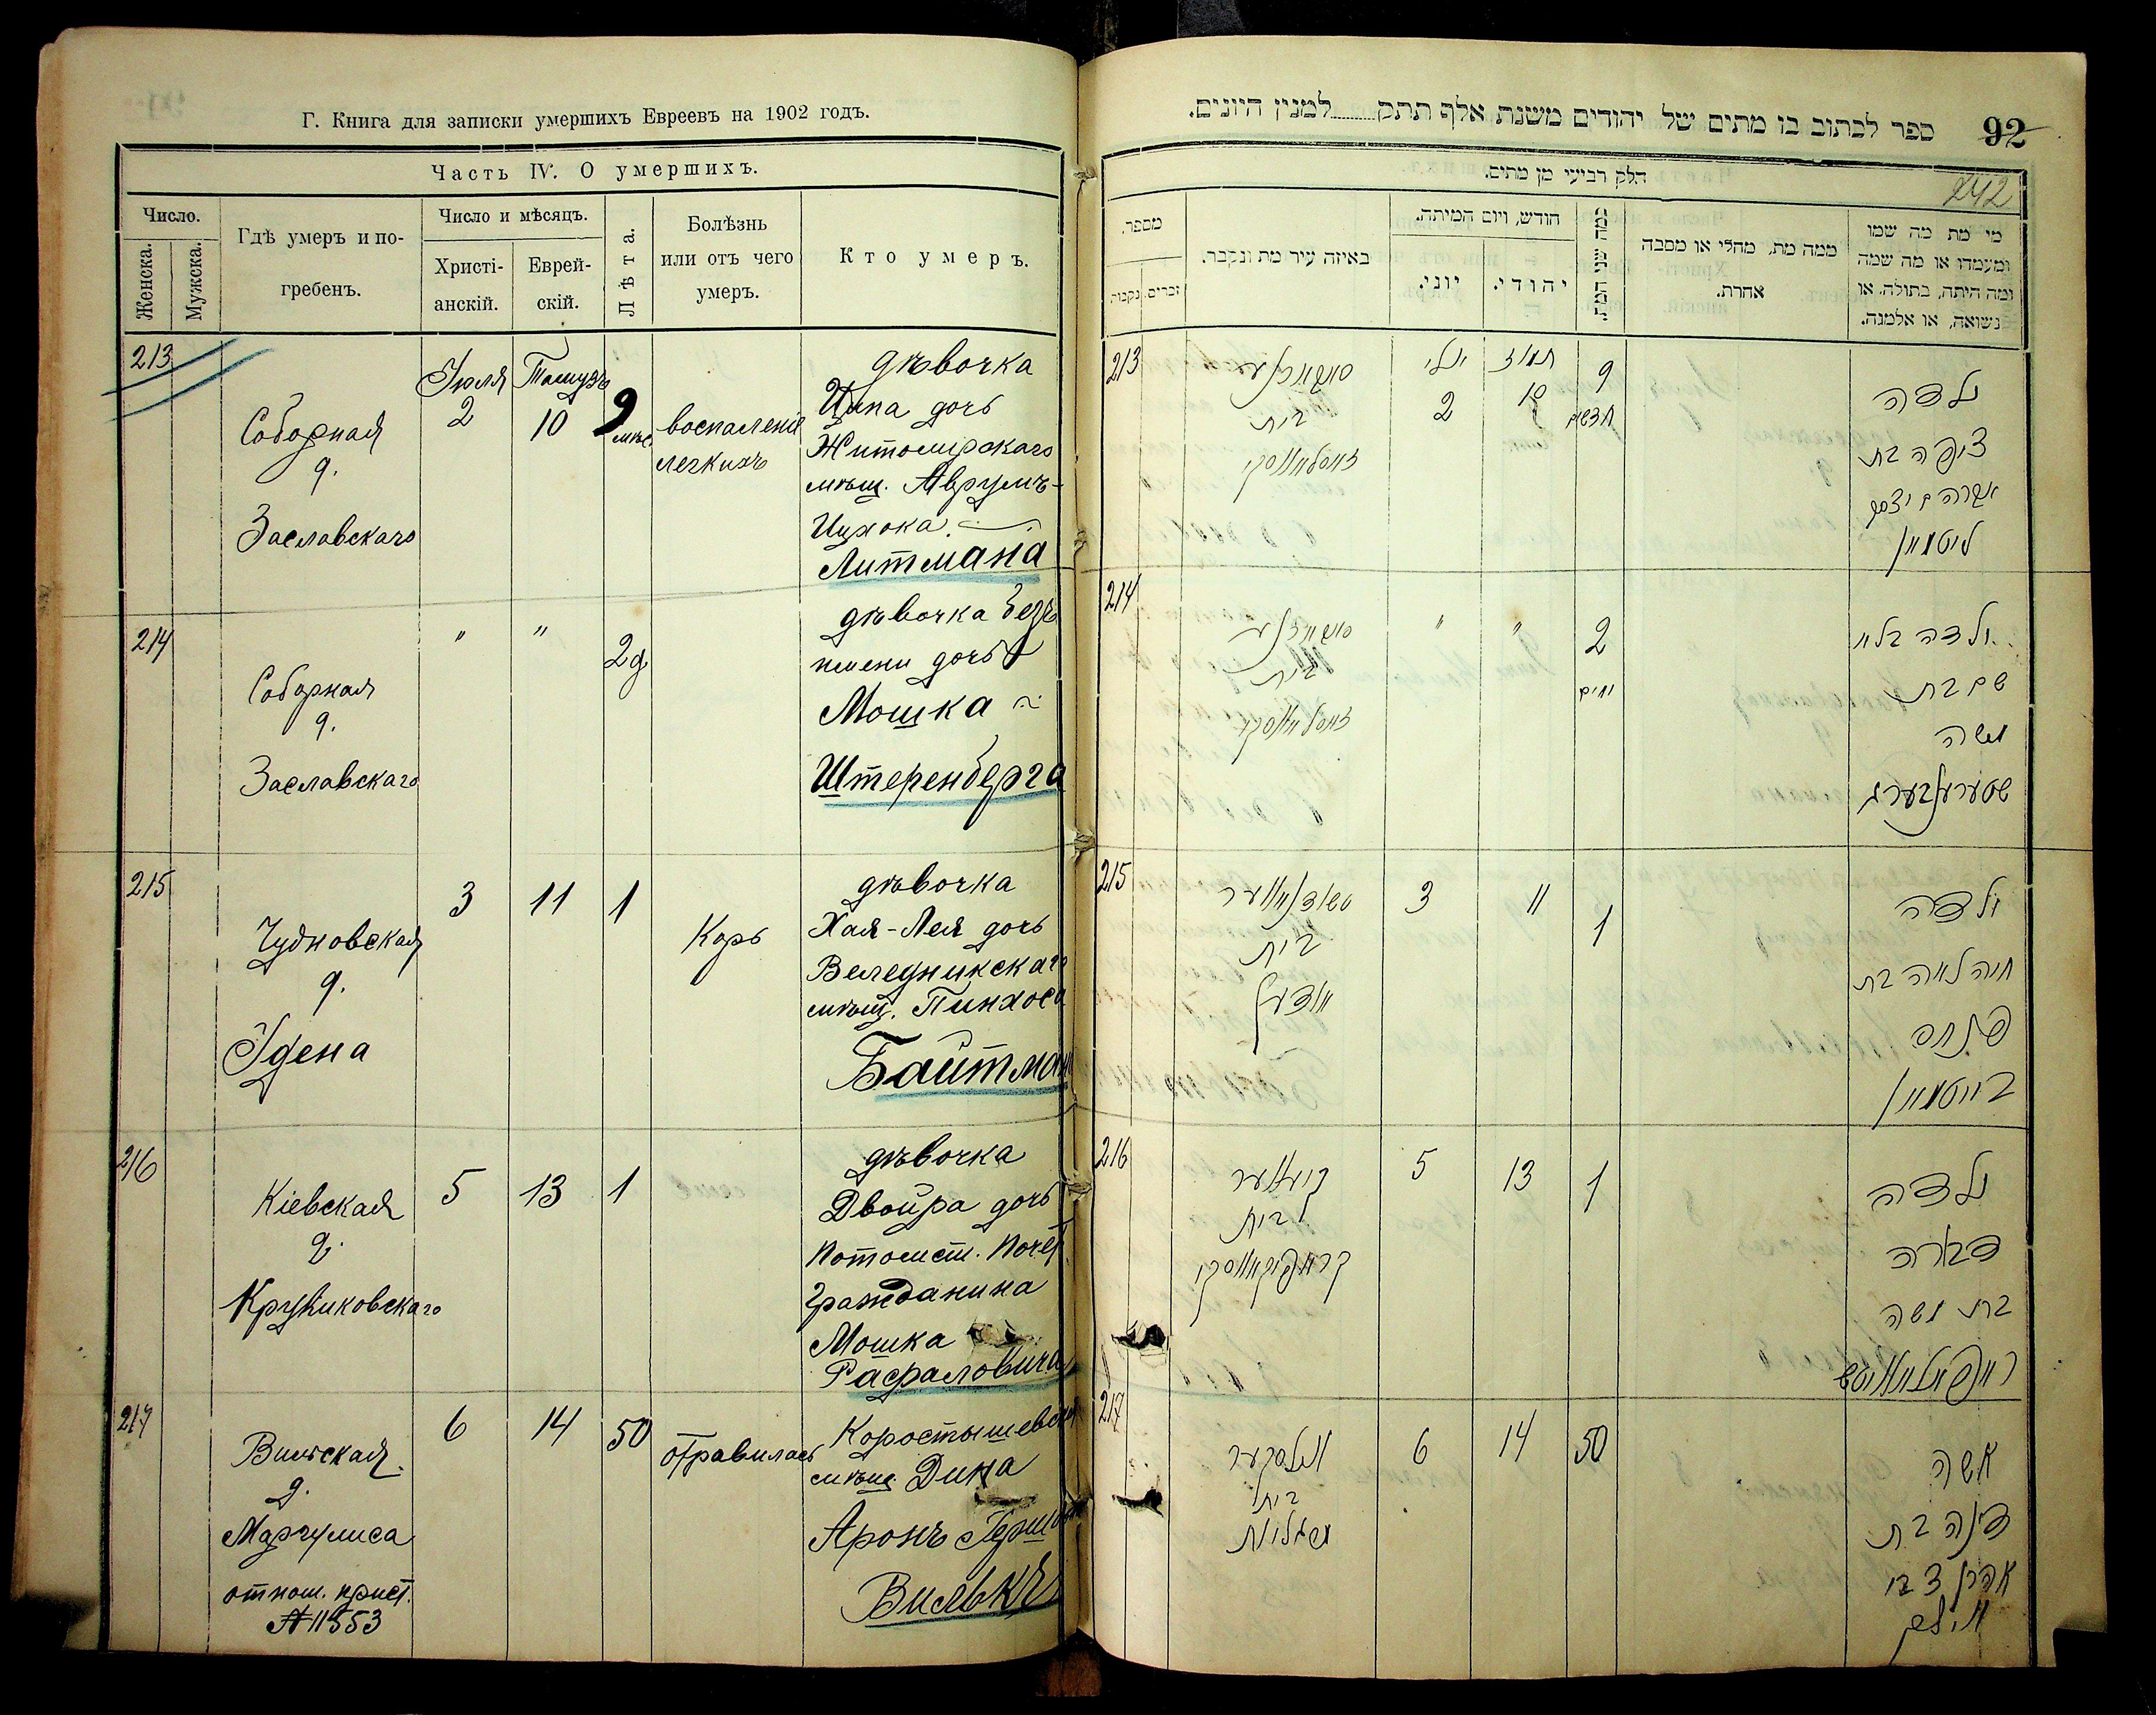 Г. Книга для записки умершихъ Евреевъ на 1902 годъ.
Часть IV. О умершихъ.
Число.
Женска.
Мужска.
Гдѣ умеръ и по-
гребенъ.
Число и мѣсяцъ.
Христі-
анскій.
Еврей-
скій.
Лѣта.
Болѣзнь
или отъ чего
умеръ.
Кто умеръ.
213
Соборная
д.
Заславскаго
Іюля
2
Тамузъ
10
9
мѣс
воспаленіе
легкихъ
дѣвочка
Ципа дочь
Житомирскаго
мѣщ. Аврумъ-
Ицхока
Литмана
214
Соборная
д.
Заславскаго
"
"
2 д
дѣвочка безъ
имени дочь
Мошка
Штеренберга
215
Чудновская
д.
Удена
3
11
1
Корь
дѣвочка
Хая-Лея дочь
Веледникскаго
мѣщ. Пинхоса
Байтман
216
Кіевская
д.
Крупиковскаго
5
13
1
дѣвочка
Двойра дочь
Потомст. Почет
гражданина
Мошка
Рафаловича
217
Вильская
д.
Маргулиса
отнош. прист.
№ 11553
6
14
50
отравилась
Коростышевск
мѣщ. Дина
Аронъ Герш
Вилькъ
92
ספר לכתוב בו מתים של יהודים משנת אלף תתק למנין היונים.
242
חלק רביעי מן מתים.
מספר.
זכרים
נקבות
באיזה עיר מת ונקבר.
חודש, ויום המיתה.
יוני.
יהודי.
כמה שני המת.
ממה מת, מחלי או מסבה
אחרת.
מי מת מה שמו
ומעמדו או מה שמה
ומה היתה, בתולה, או
נשואה, או אלמנה.
213
בית
זאסלאווסקי
יולי
2
תמוז
10
9
חדשים
ילדה
ציפה בת
אברהם יצחק
ליטמאן
214
בית
זאסלאווסקי
"
"
2
ימים
ילדה בלא
שם בת
משה
שטערענבערג
215
טשודנאווער
בית
3
11
1
ילדה
חיה לאה בת
פנחס
בייטמאן
216
קיעווער
בית
קרופיקאווסקי
5
13
1
ילדה
דבורה
בת משה
ראפאלאוויטש
217
ווילסקער
בית
מרגליות
6
14
50
אשה
דינה בת
אהרן צבי
ווילק